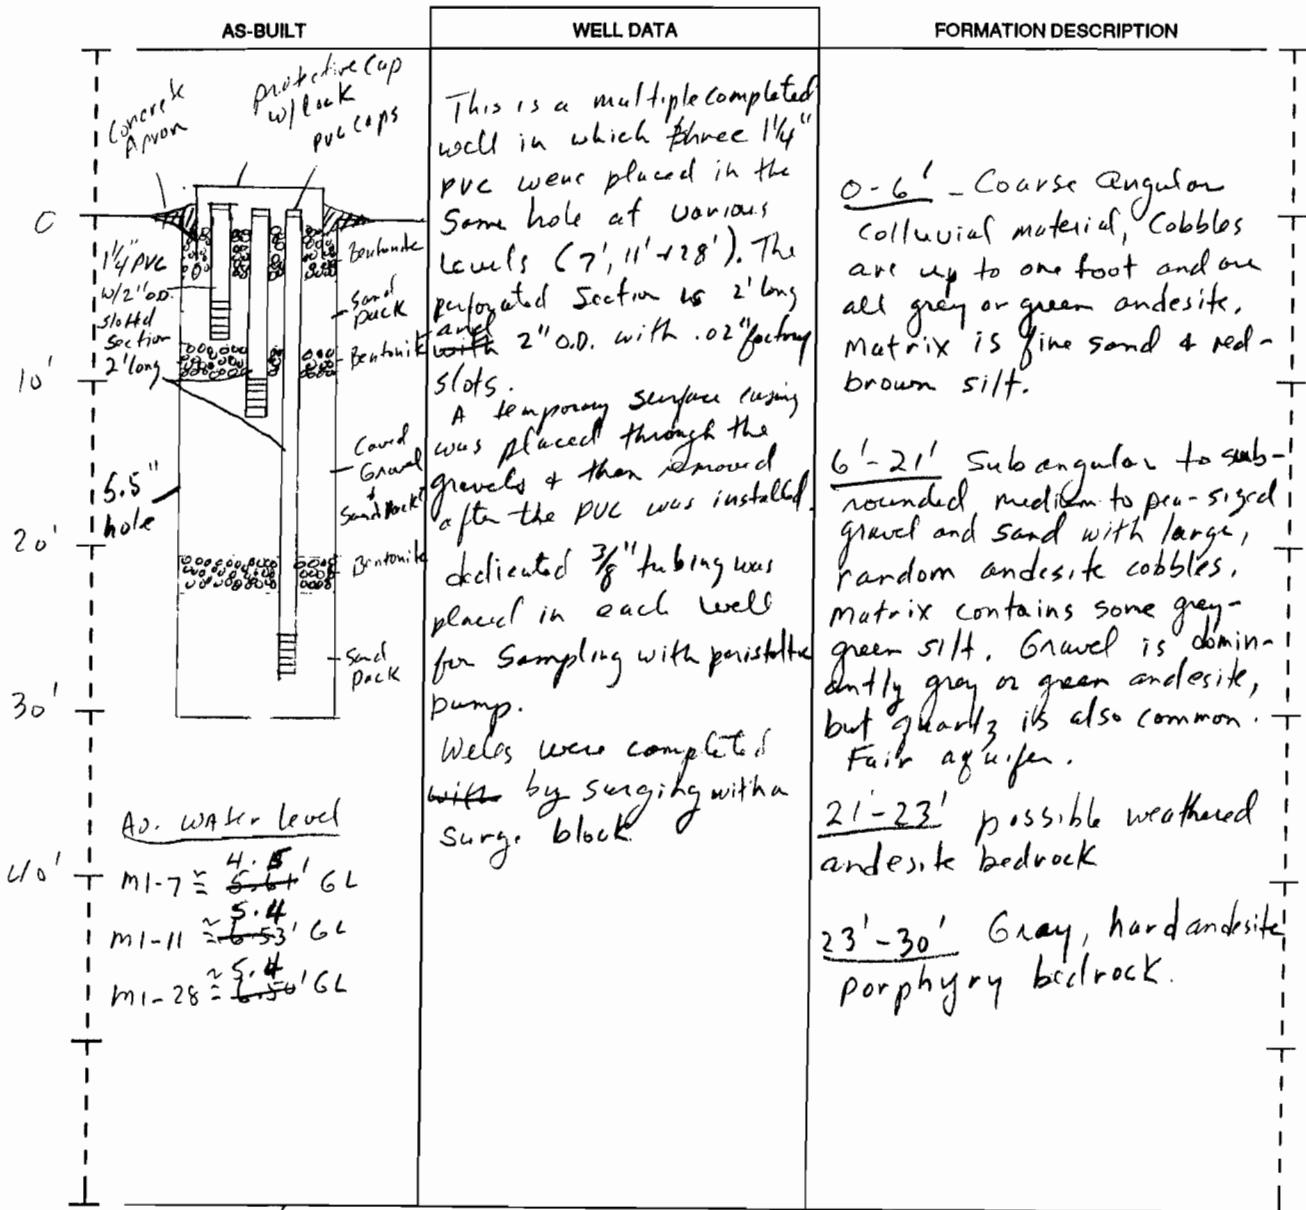 AS-BUILT
WELL DATA
FORMATION DESCRIPTION
Concrete
Apron
protective cap
w/lock
PVC caps
0
10'
20'
30'
40'
1 1/4" PVC
w/2" O.D.
slotted
section
2' long
5.5"
hole
Bentonite
Sand
pack
Bentonite
Caved
Gravel
+
Sand Pack
Bentonite
Sand
pack
Av. Water Level
4.5
M1-7 ≅ 5.61' GL
5.4
M1-11 ≅ 6.53' GL
~ 5.4
M1-28 ≅ 6.50' GL
This is a multiple completed
well in which three 1 1/4"
PVC were placed in the
same hole at various
levels (7', 11' + 28'). The
perforated section is 2' long
and
with 2" O.D. with .02" factory
slots.
A temporary surface casing
was placed through the
gravels + then removed
after the PVC was installed.
dedicated 3/8" tubing was
placed in each well
for sampling with peristaltic
pump.
Wells were completed
with by surging with a
surge block.
0-6' - Coarse angular
colluvial material, Cobbles
are up to one foot and are
all grey or green andesite.
Matrix is fine sand & red-
brown silt.
6'-21' Subangular to sub-
rounded medium to pea-sized
gravel and sand with large,
random andesite cobbles.
Matrix contains some grey-
green silt. Gravel is domin-
antly grey or green andesite,
but quartz is also common.
Fair aquifer.
21'-23' possible weathered
andesite bedrock
23'-30' Gray, hard andesite
porphyry bedrock.